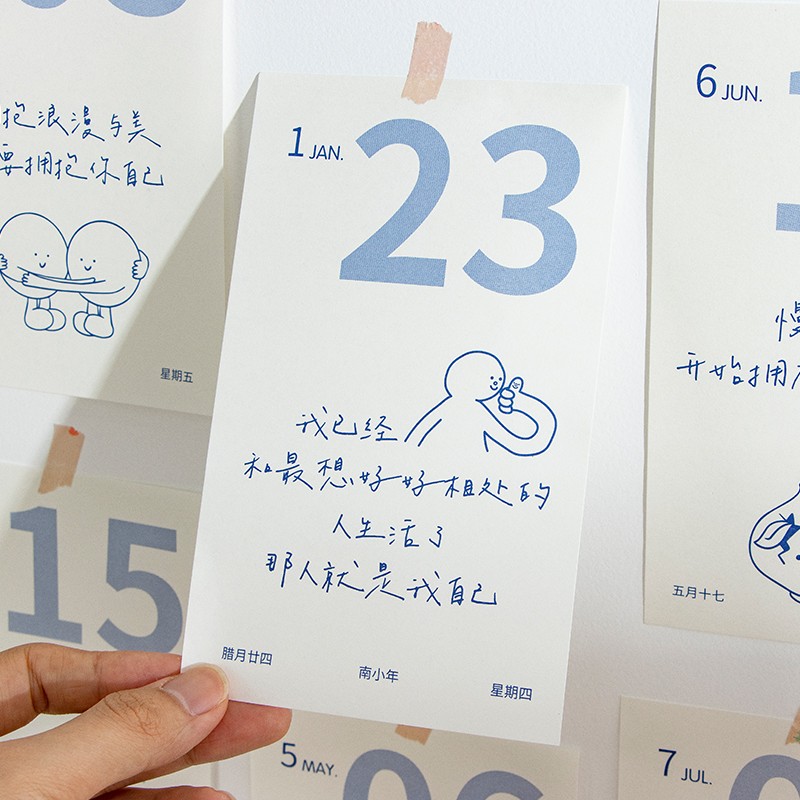 抱浪漫与美
要拥抱你自己
星期五
1 JAN.
23
我已经
和最想好好相处的
人生活了
那人就是我自己
腊月廿四
南小年
星期四
6 JUN.
慢
开始拥
五月十七
15
5 MAY.
06
7 JUL.